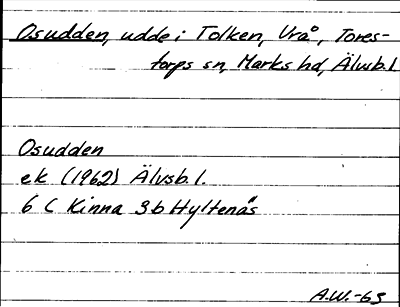 Osudden, udde i Tolken, Vrå, Tores-
torps sn, Marks hd, Älvsb.l.
Osudden
ek (1962) Älvsb.l.
6 C Kinna 3b Hyltenäs
A.W.-63